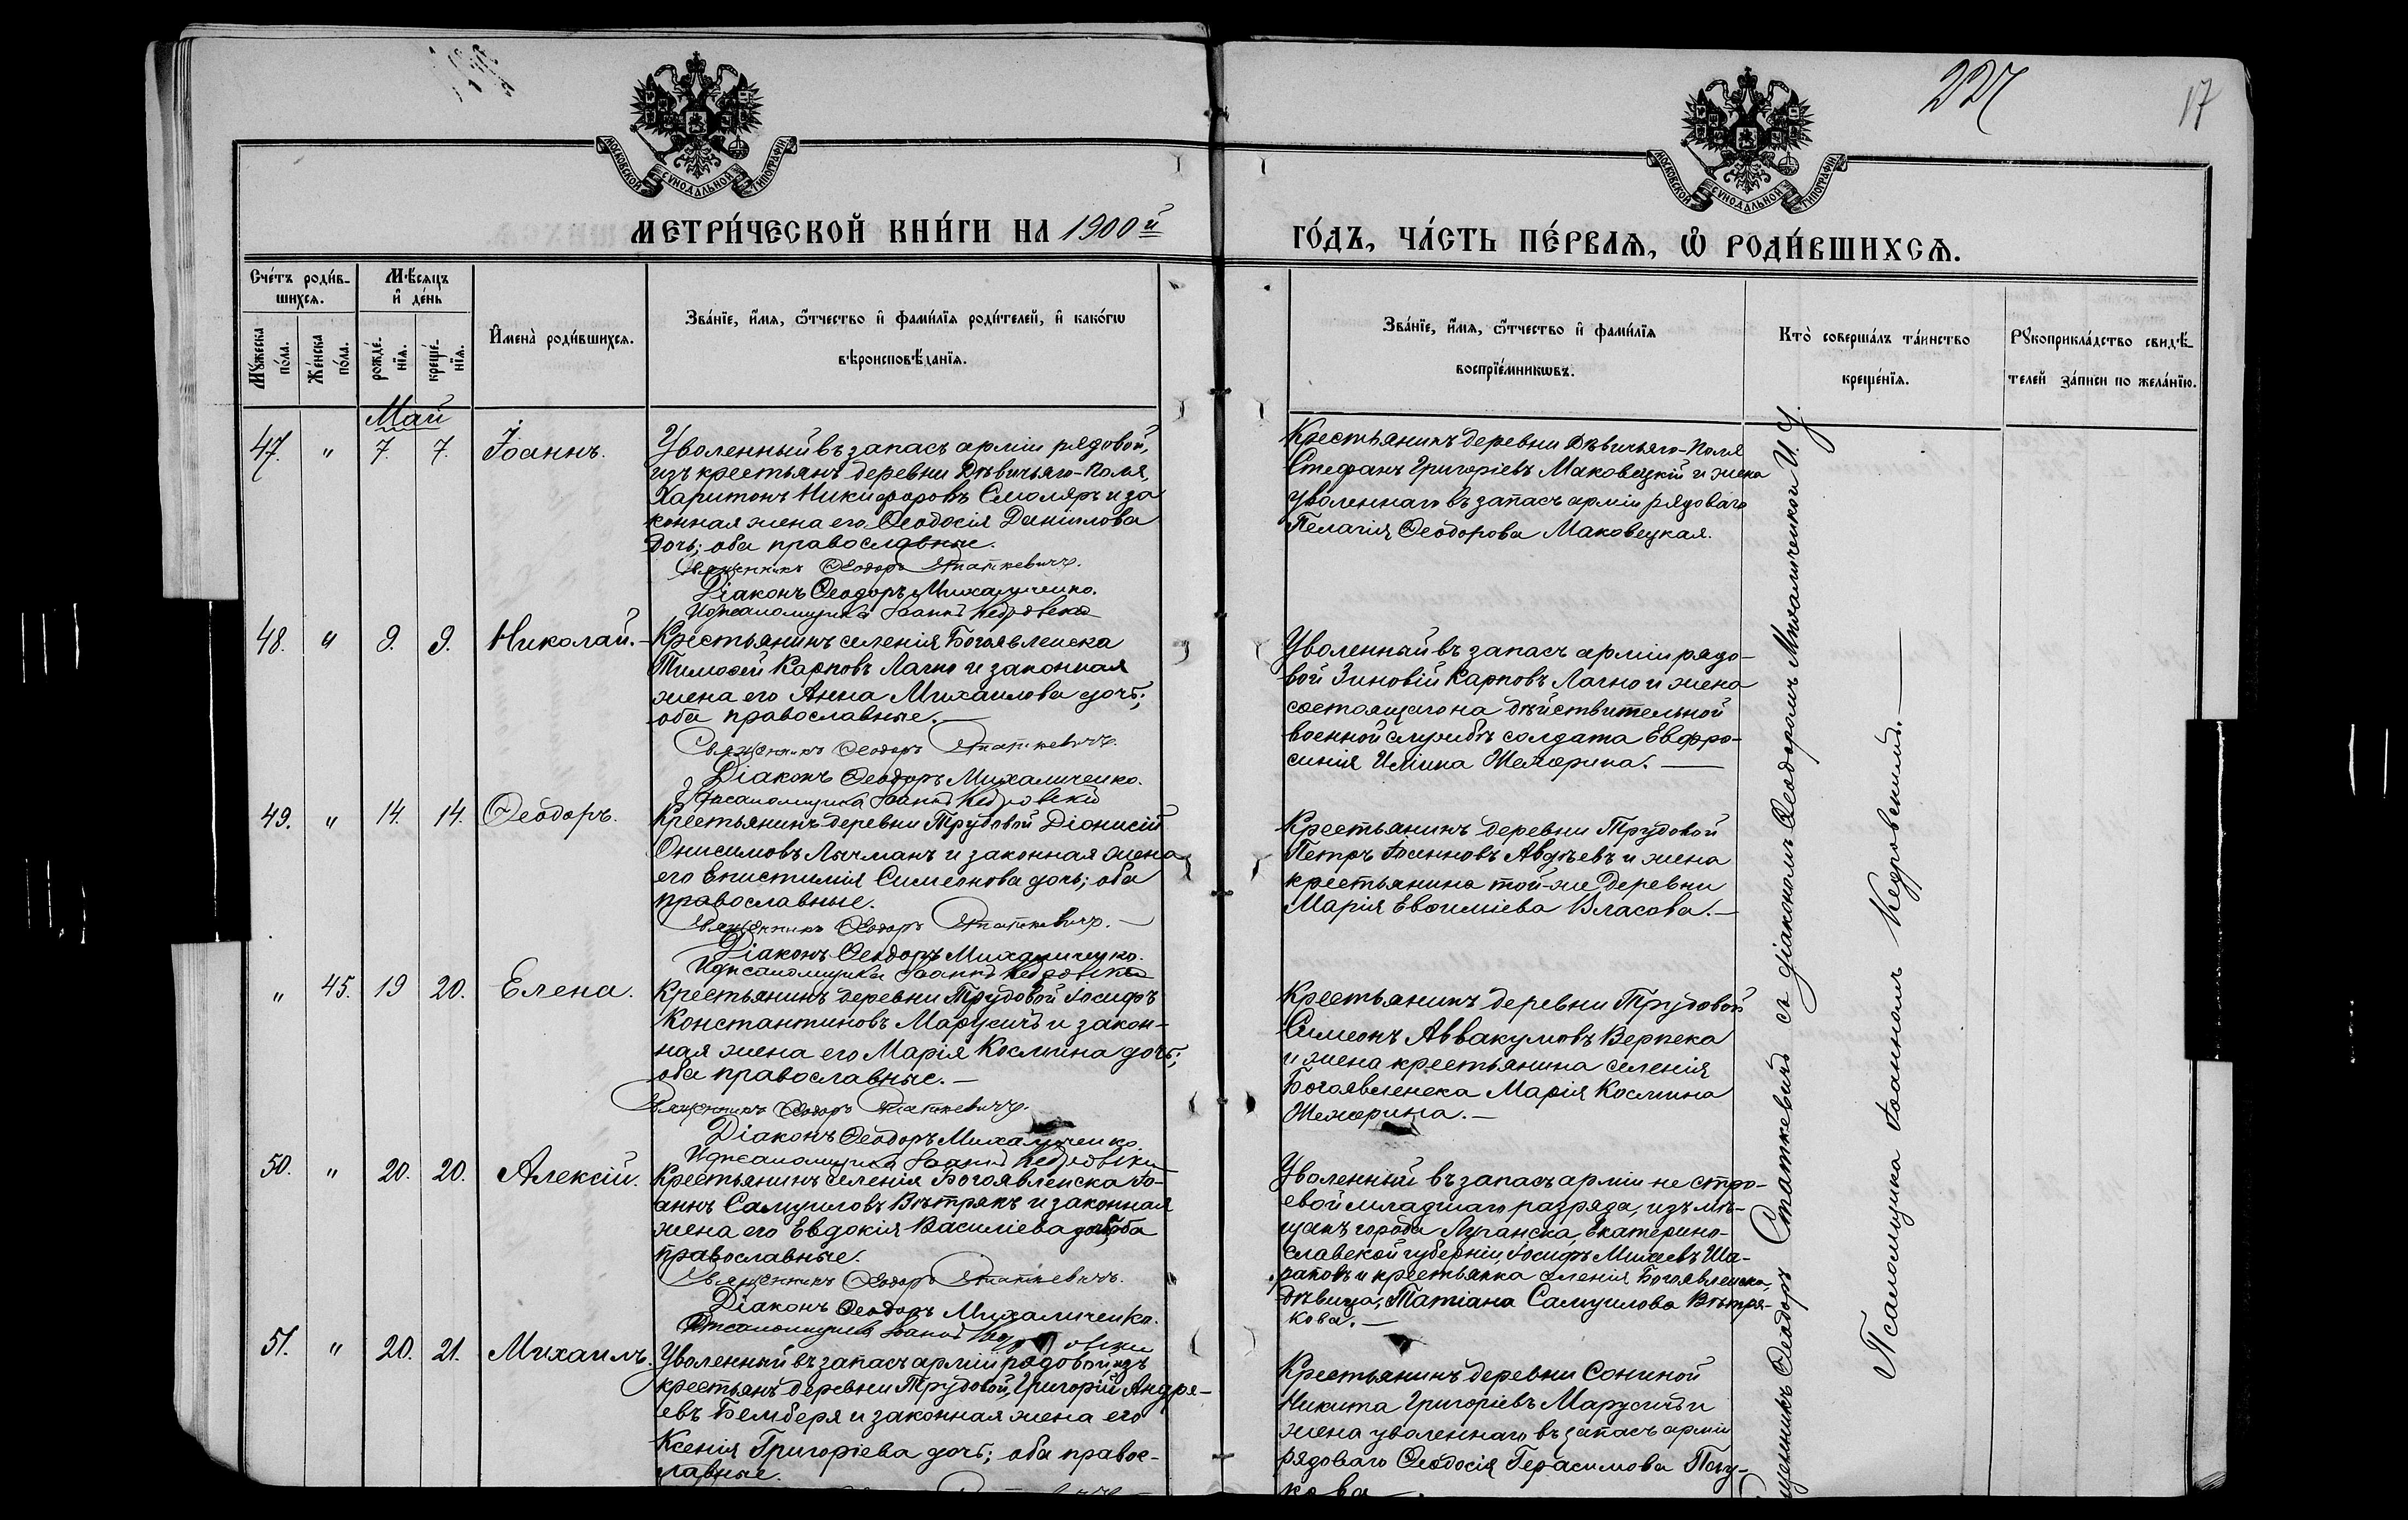 227
17
МОСКОВСКОЙ СѴНОДАЛЬНОЙ ТИПОГРАФІИ
МОСКОВСКОЙ СѴНОДАЛЬНОЙ ТИПОГРАФІИ
МЕТРИ́ЧЕСКОЙ КНИ́ГИ НА 1900й
ГО́ДЪ, ЧА́СТЬ ПЕ́РВАѦ, Ѡ РОДИ́ВШИХСѦ.
Сче́тъ роди́в-
шихсѧ.
Мꙋ́жеска по́ла.
Же́нска по́ла.
Мѣ́сѧцъ
и҆ де́нь
рожде́-
нїѧ.
креще́-
нїѧ.
И҆мена̀ роди́вшихсѧ.
Зва́нїе, и҆́мѧ, ѻ҆́тчество и҆ фами́лїѧ роди́телей, и҆ како́гѡ
вѣроисповѣ́данїѧ.
Зва́нїе, и҆́мѧ, ѻ҆́тчество и҆ фами́лїѧ
воспрїе́мникѡвъ.
Кто̀ соверша́лъ та́инство
креще́нїѧ.
Рꙋкоприкла́дство свидѣ́-
телей за́писи по жела́нїю.
Май
47. " 7. 7. Іоаннъ.
Уволенный въ запасъ арміи рядовой,
изъ крестьянъ деревни Дѣвичьяго-Поля,
Харитонъ Никифоровъ Смоляръ и за
конная жена его Ѳеодосія Данилова
дочь; оба православные.
Священникъ Ѳеодоръ Статкевичъ.
Діаконъ Ѳеодоръ Михаличенко.
И. д. псаломщика Іоаннъ Кедровскій
Крестьянинъ деревни Дѣвичьяго-Поля
Стефанъ Григоріевъ Маковецкій и жена
уволеннаго въ запасъ арміи рядоваго
Пелагія Ѳеодорова Маковецкая.
48. " 9. 9. Николай.
Крестьянинъ селенія Богоявленска
Тимоѳей Карповъ Лагно и законная
жена его Анна Михаилова дочь;
оба православные.
Священникъ Ѳеодоръ Статкевичъ.
Діаконъ Ѳеодоръ Михаличенко.
псаломщика Іоаннъ Кедровскій
Уволенный въ запасъ арміи рядо-
вой Зиновій Карповъ Лагно и жена
состоящаго на дѣйствительной
военной службѣ солдата Евфро-
синія Иліина Жежерина.
49. " 14. 14. Ѳеодоръ.
Крестьянинъ деревни Трудовой Діонисій
Онисимовъ Лычманъ и законная жена
его Епистимія Симеонова дочь; оба
православные.
Священникъ Ѳеодоръ Статкевичъ.
Діаконъ Ѳеодоръ Михаличенко.
И. д. псаломщика Іоаннъ Кедровскій
Крестьянинъ деревни Трудовой
Петръ Іоанновъ Авдѣевъ и жена
крестьянина той-же деревни
Марія Евѳиміева Власова.
" 45. 19 20. Елена.
Крестьянинъ деревни Трудовой Іосифъ
Константиновъ Марусичъ и закон-
ная жена его Марія Космина дочь;
оба православные.
Священникъ Ѳеодоръ Статкевичъ.
Діаконъ Ѳеодоръ Михаличенко
И. д. псаломщика Іоаннъ Кедровскій
Крестьянинъ деревни Трудовой
Симеонъ Аввакумовъ Верпека
и жена крестьянина селенія
Богоявленска Марія Космина
Жежерина.
50. " 20. 20. Алексій.
Крестьянинъ селенія Богоявленска Іо-
аннъ Самуиловъ Вѣтрякъ и законная
жена его Евдокія Василіева дочь; оба
православные.
Священникъ Ѳеодоръ Статкевичъ.
Діаконъ Ѳеодоръ Михаличенко.
псаломщика Іоаннъ
Уволенный въ запасъ арміи не стро-
евой младшаго разряда, изъ мѣ-
щанъ города Луганска, Екатерино-
славской губерніи, Іосифъ Михеевъ Ша-
раповъ и крестьянка селенія Богоявленска,
дѣвица, Татіана Самуилова Вѣтря-
кова.
51. " 20. 21. Михаилъ.
Уволенный въ запасъ арміи рядовой, изъ
крестьянъ деревни Трудовой, Григорій Андре-
евъ Бемберя и законная жена его
Ксенія Григоріева дочь; оба правос-
лавные.
Крестьянинъ деревни Сониной
Никита Григоріевъ Марусичъ и
жена уволеннаго въ запасъ арміи
рядоваго Ѳеодосія Герасимова
кова.
Священникъ Ѳеодоръ Статкевичъ съ діакономъ Ѳеодоромъ Михаличенкой и. д.
Псаломщика Іоанномъ Кедровскимъ.